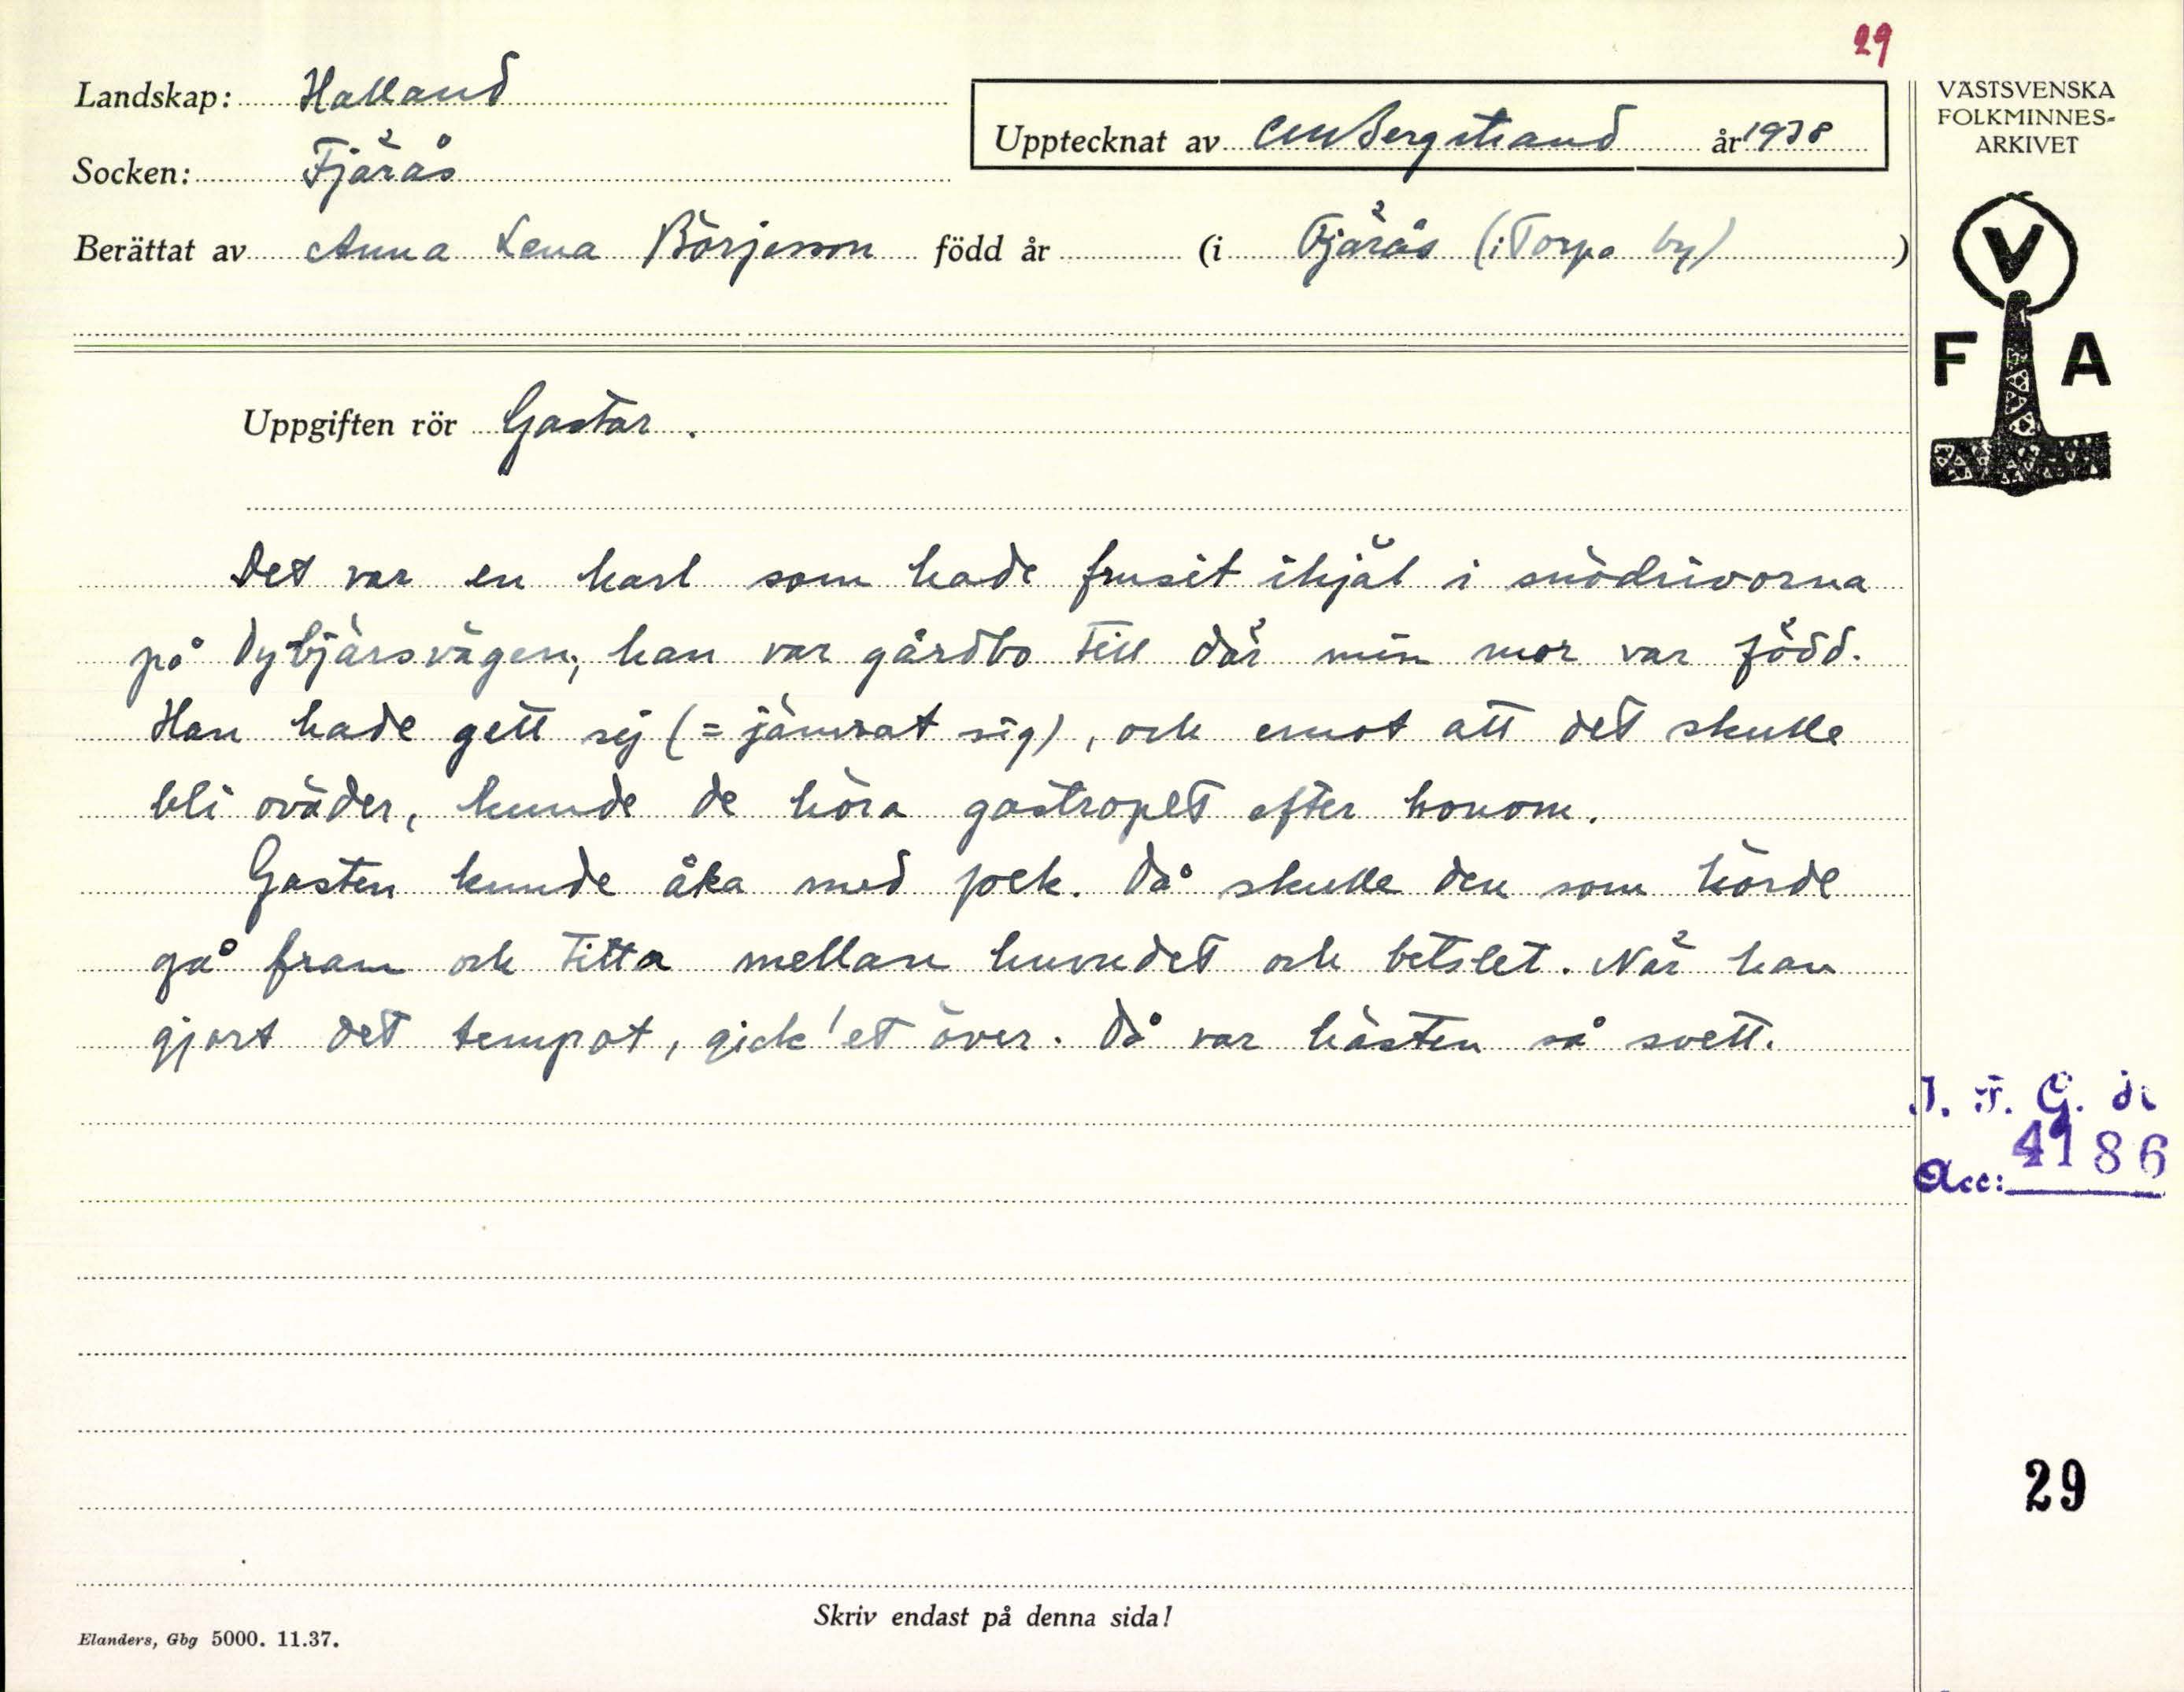 29
Landskap: Halland
Socken: Fjärås
Upptecknat av CMBergstrand år 1938
Berättat av Anna Lena Börjesson född år (i Fjärås (i Torpa by) )
VÄSTSVENSKA
FOLKMINNES-
ARKIVET
V
F A
Uppgiften rör Gastar.
Det var en karl som hade frusit ihjäl i snödrivorna
på Dybjärsvägen; han var gårdbo till där min mor var född.
Han hade gett sej (= jämrat sig), och emot att det skulle
bli oväder, kunde de höra gastropet efter honom.
Gasten kunde åka med folk. Då skulle den som körde
gå fram och titta mellan huvudet och betslet. När han
gjort det tempot, gick 'et över. Då var hästen så svett.
I. F. G. s
Acc: 4186
29
Skriv endast på denna sida!
Elanders, Gbg 5000. 11.37.